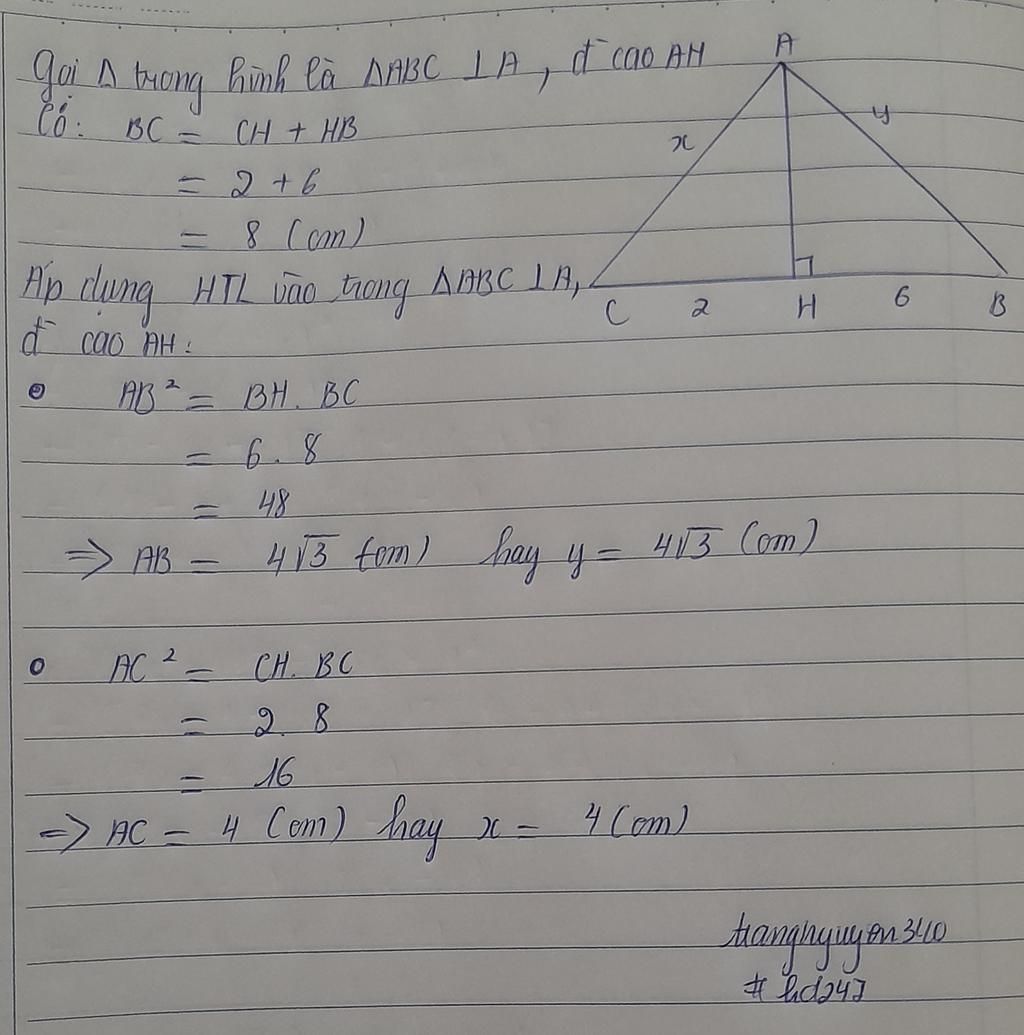 Gọi Δ trong hình là ΔABC ⊥ A, đ cao AH
Có: BC = CH + HB
= 2 + 6
= 8 (cm)
Áp dụng HTL vào trong ΔABC ⊥ A,
đ cao AH:
AB² = BH. BC
= 6. 8
= 48
=> AB = 4√3 (cm) hay y = 4√3 (cm)
AC² = CH. BC
= 2. 8
= 16
=> AC = 4 (cm) hay x = 4 (cm)
A
x
y
C 2 H 6 B
# hd247